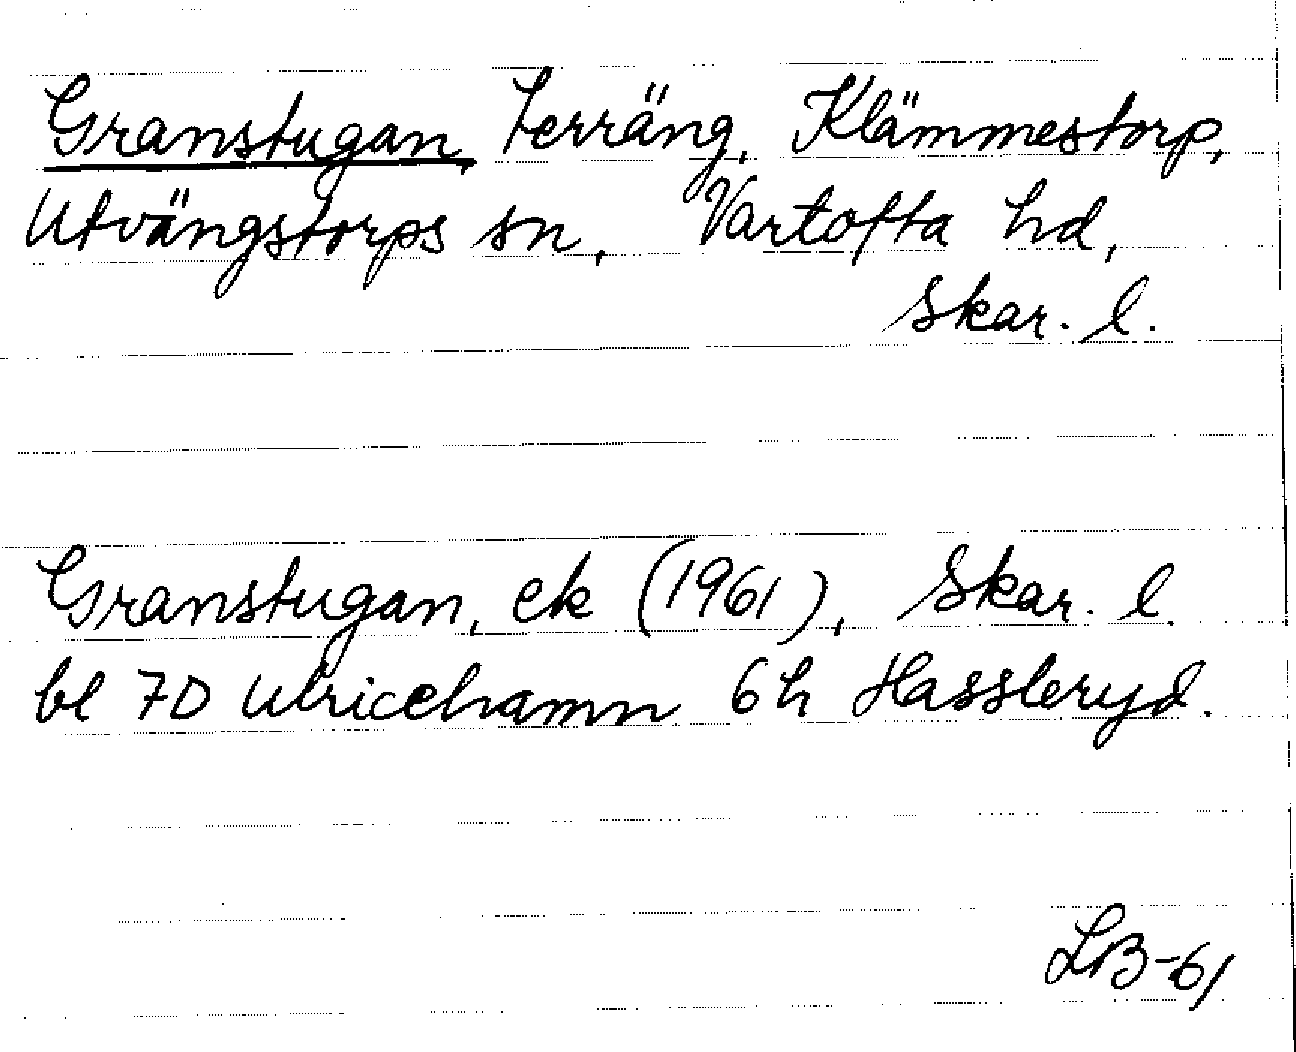 Granstugan, terräng, Klämmestorp,
Utvängstorps sn, Vartofta hd,
Skar. l.
Granstugan, ek (1961), Skar. l.
bl 7D Ulricehamn 6h Hassleryd.
LB-61